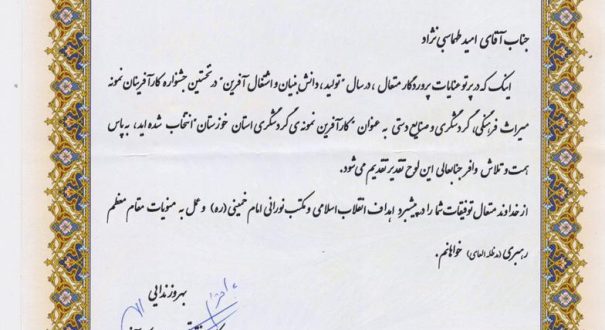 جناب آقای امید طهماسبی نژاد
اینک که در پرتو عنایات پروردگار متعال، در سال "تولید، دانش بنیان و اشتغال آفرین" در نخستین جشنواره کارآفرینان نمونه
میراث فرهنگی، گردشگری و صنایع دستی به عنوان "کارآفرین نمونه ی گردشگری استان خوزستان" انتخاب شده اید، به پاس
همت و تلاش وافر جنابعالی این لوح تقدیر تقدیم می شود.
از خداوند متعال توفیقات شما را در پیشبرد اهداف انقلاب اسلامی و مکتب نورانی امام خمینی (ره) و عمل به منویات مقام معظم
رهبری (مدظله العالی) خواهانم.
بهروز ندایی